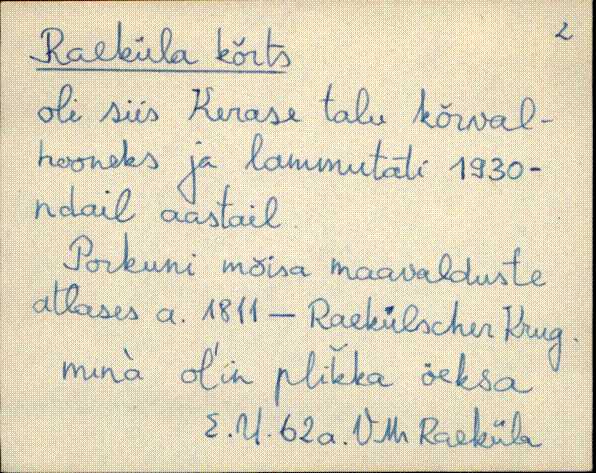 2
Raeküla kõrts
oli siis Kerase talu kõrval-
hooneks ja lammutati 1930-
ndail aastail.
Porkuni mõisa maavalduste
atlases a. 1811 — Raekülscher Krug.
minà ol'in plik̆ka öeksa
E.U. 62a. VMr Raeküla